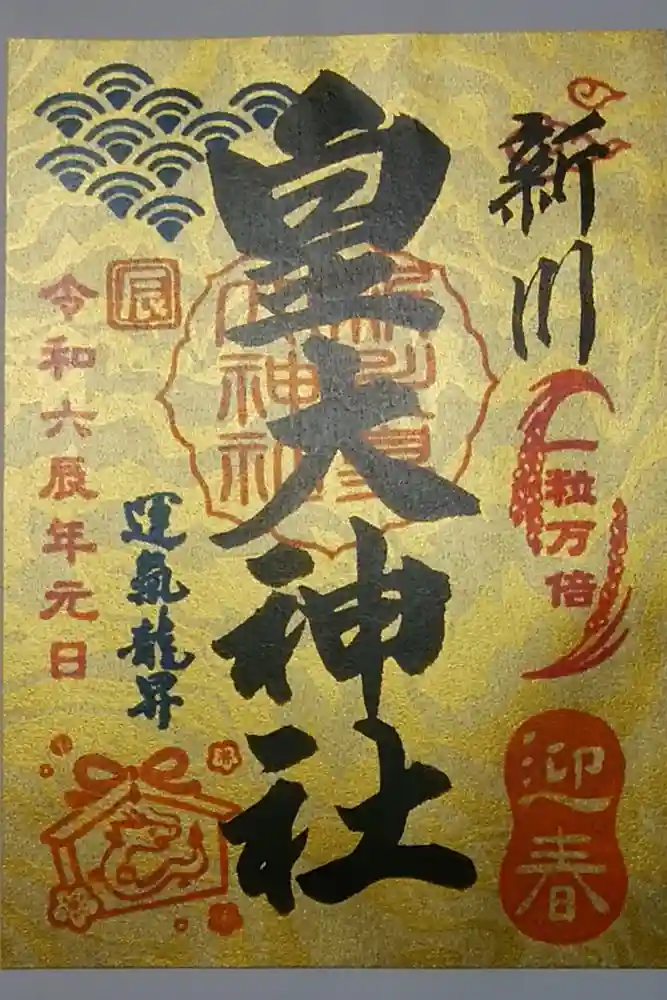 新川
一粒万倍
迎春
皇大神社
辰
令和六辰年元日
運氣龍昇